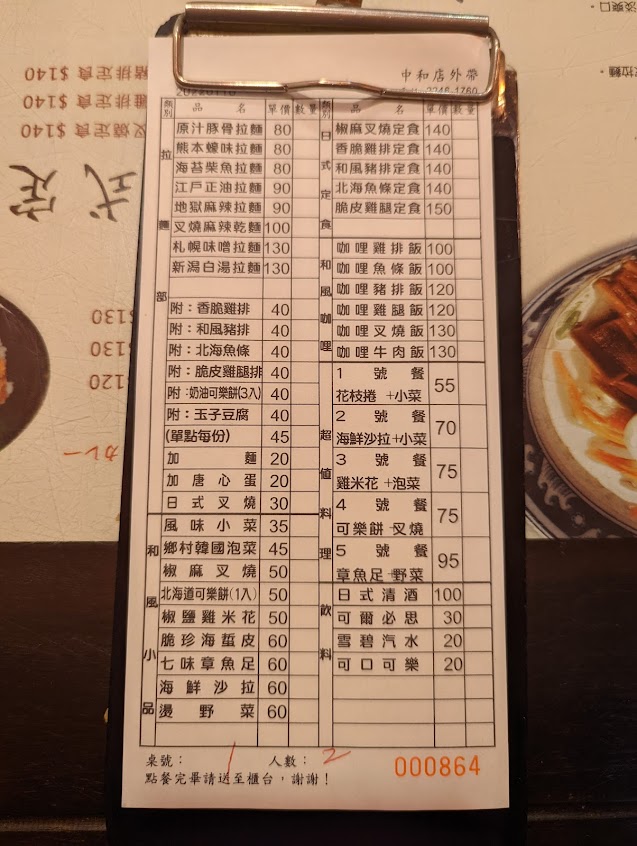 中和店外帶
2246-1760
類別 品名 單價 數量
拉麵部
原汁豚骨拉麵 80
熊本蠔味拉麵 80
海苔柴魚拉麵 80
江戶正油拉麵 90
地獄麻辣拉麵 90
叉燒麻辣乾麵 100
札幌味噌拉麵 130
新潟白湯拉麵 130
附：香脆雞排 40
附：和風豬排 40
附：北海魚條 40
附：脆皮雞腿排 40
附：奶油可樂餅(3入) 40
附：玉子豆腐 40
(單點每份) 45
加麵 20
加唐心蛋 20
日式叉燒 30
和風小品
風味小菜 35
鄉村韓國泡菜 45
椒麻叉燒 50
北海道可樂餅(1入) 50
椒鹽雞米花 50
脆珍海蜇皮 60
七味章魚足 60
海鮮沙拉 60
燙野菜 60
類別 品名 單價 數量
日式定食
椒麻叉燒定食 140
香脆雞排定食 140
和風豬排定食 140
北海魚條定食 140
脆皮雞腿定食 150
和風咖哩
咖哩雞排飯 100
咖哩魚條飯 100
咖哩豬排飯 120
咖哩雞腿飯 120
咖哩叉燒飯 130
咖哩牛肉飯 130
超值料理
1號餐 55
花枝捲+小菜
2號餐 70
海鮮沙拉+小菜
3號餐 75
雞米花+泡菜
4號餐 75
可樂餅+叉燒
5號餐 95
章魚足+野菜
飲料
日式清酒 100
可爾必思 30
雪碧汽水 20
可口可樂 20
桌號：1 人數：2
000864
點餐完畢請送至櫃台，謝謝！
豬排定食 $140
雞排定食 $140
叉燒定食 $140
式定
$130
$130
$120
カレー